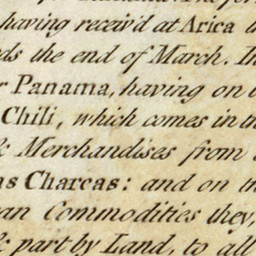 having receiv'd at Arica
the end of March.
Panama, having on
Chili, which comes in
Merchandises from
as Charcas: and on
Commodities they,
part by Land, to all